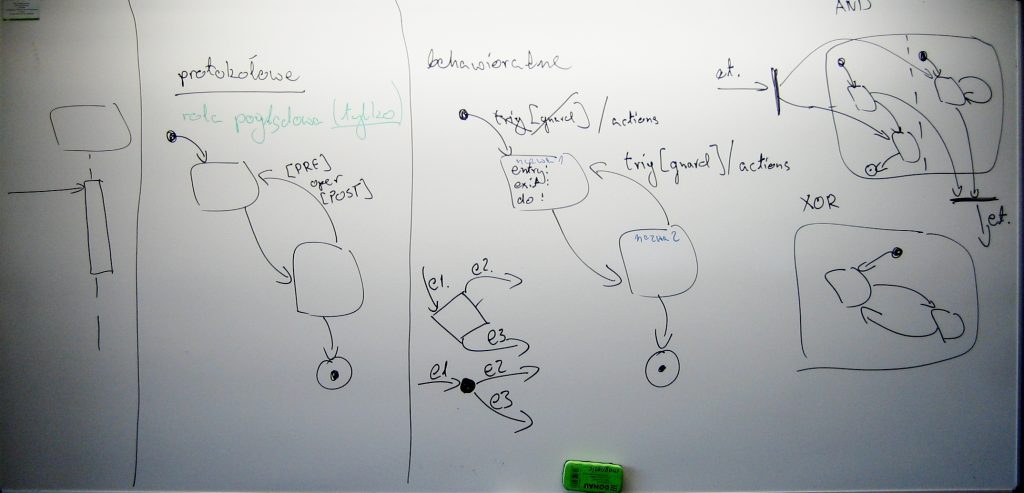 protokołowe
rola poglądowa (tylko)
[PRE]
oper
[POST]
behawioralne
trig[guard]/actions
nazwa 1
entry:
exit:
do:
trig[guard]/actions
nazwa 2
e1.
e2.
e3
e1
e2
e3
AND
et.
et.
XOR
magnetic
DONAU